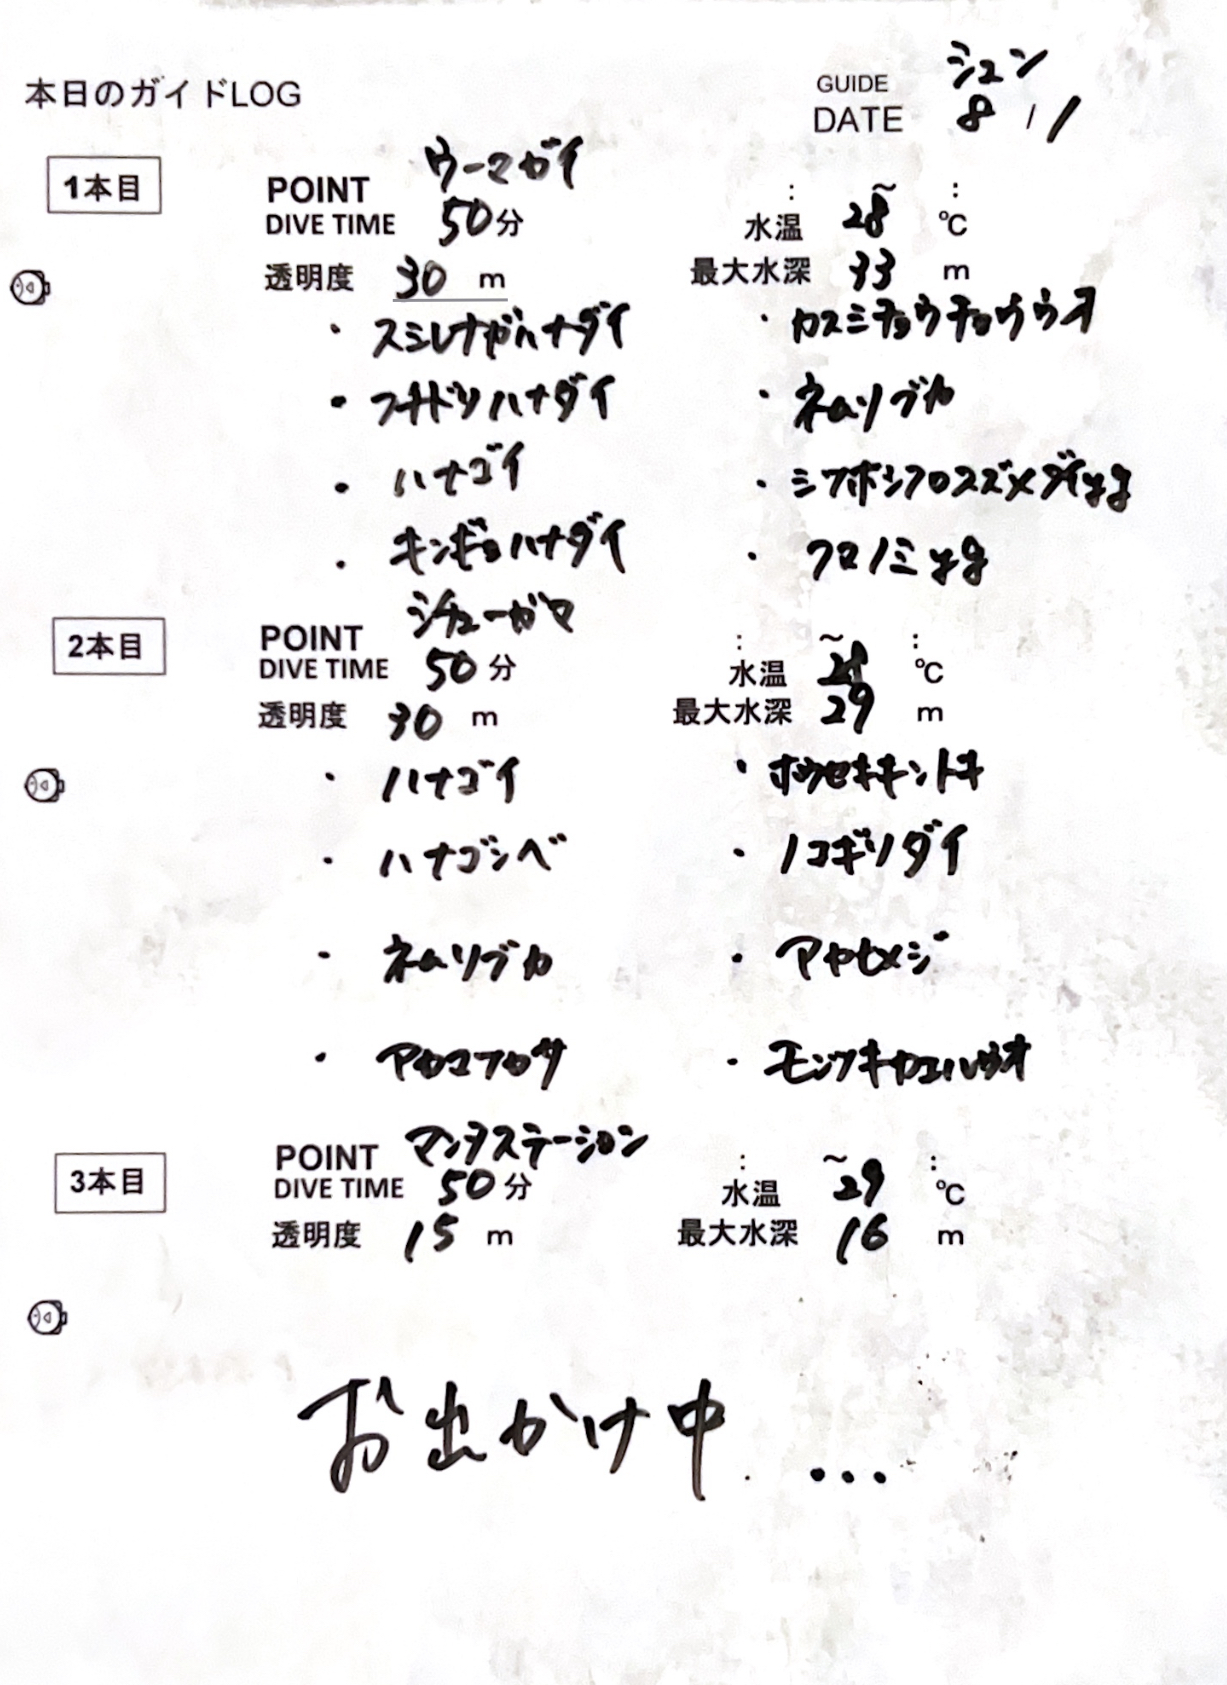 本日のガイドLOG
GUIDE シュン
DATE 8/1
1本目
POINT ウーマガイ
DIVE TIME 50分 : ~ :
水温 28 ℃
透明度 30 m 最大水深 33 m
・スミレナガハナダイ ・カスミチョウチョウウオ
・フチドリハナダイ ・ネムリブカ
・ハナゴイ ・シコホシクロスズメダイyg
・キンギョハナダイ ・クロノミyg
2本目
POINT シチューガマ : ~ :
DIVE TIME 50分 水温 ℃
透明度 30 m 最大水深 29 m
・ハナゴイ ・ホウセキキントキ
・ハナゴンベ ・ノコギリダイ
・ネムリブカ ・アヤセメジ
・アカマツカサ ・モンツキカエルウオ
3本目
POINT マンタステーション : ~ :
DIVE TIME 50分 水温 29 ℃
透明度 15 m 最大水深 16 m
お出かけ中...